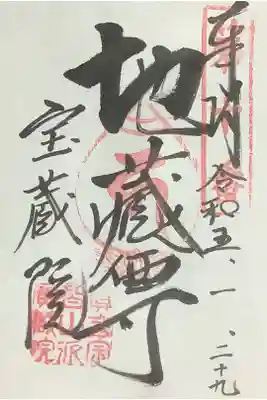 奉拝
令和五、一、二十九
地蔵尊
宝蔵院